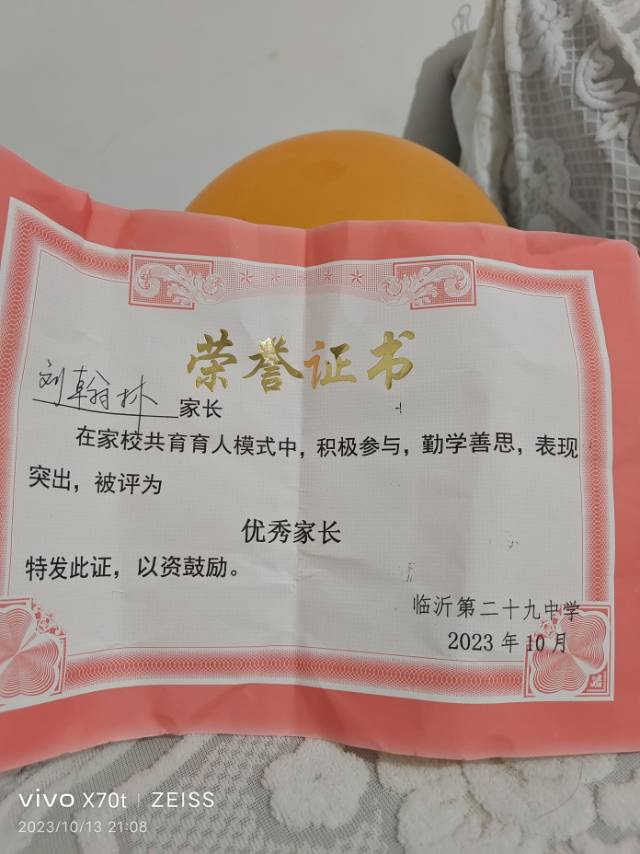 荣誉证书
刘翰林 家长
在家校共育育人模式中,积极参与,勤学善思,表现
突出,被评为
优秀家长
特发此证,以资鼓励。
临沂第二十九中学
2023年10月
vivo X70t | ZEISS
2023/10/13 21:08